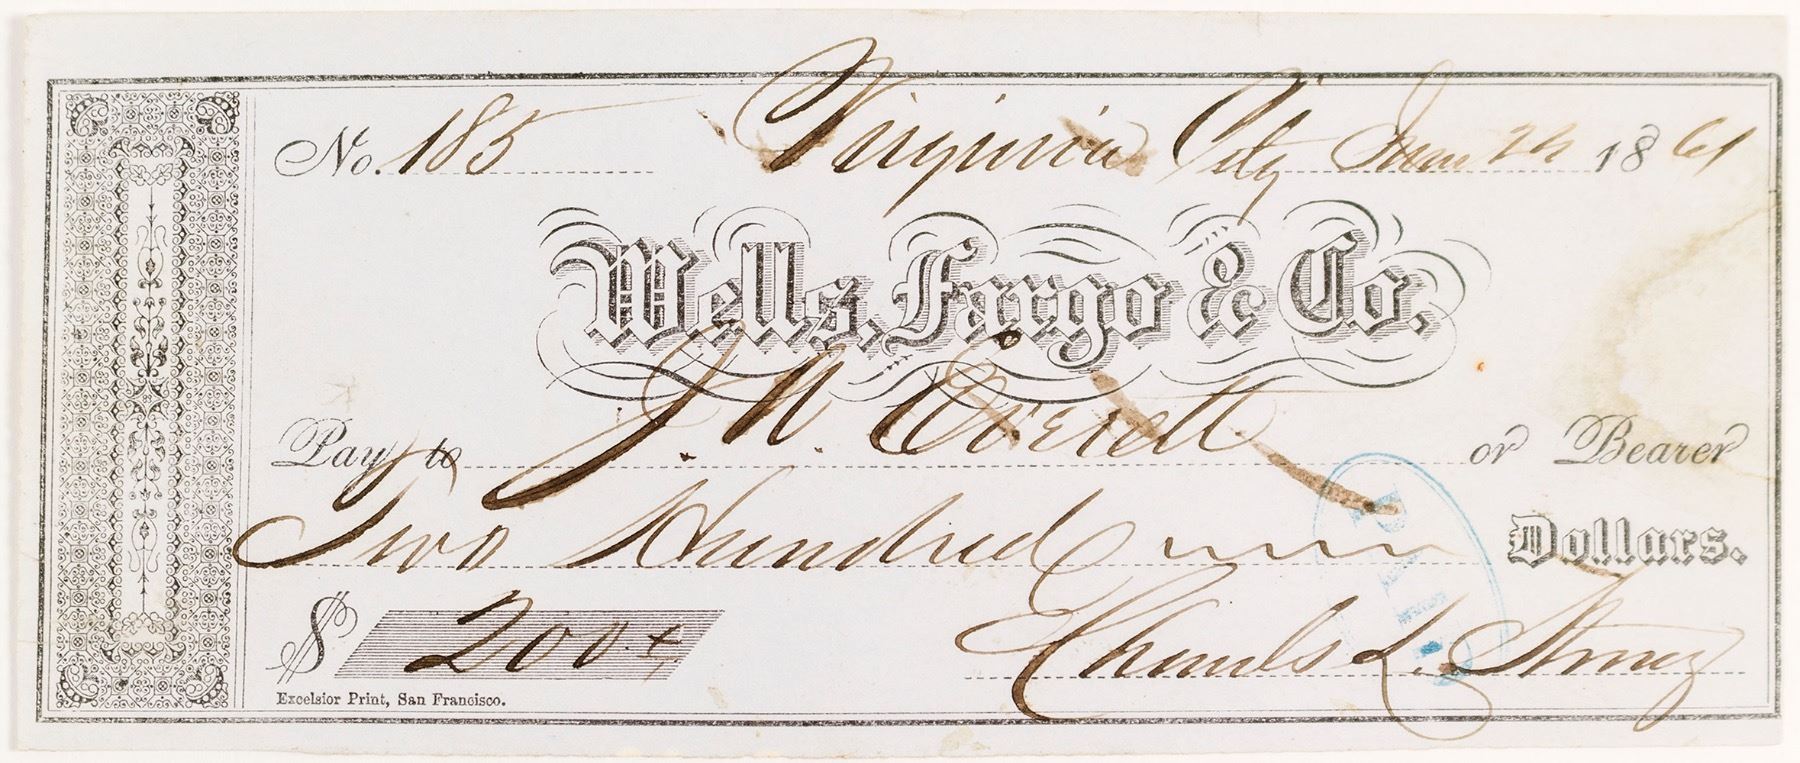 No. 185 Virginia City Jan 26 1861
Wells, Fargo & Co.
Pay to J. W. Everett or Bearer
Two Hundred Dollars.
$ 200
Charles L. Strong
Excelsior Print, San Francisco.